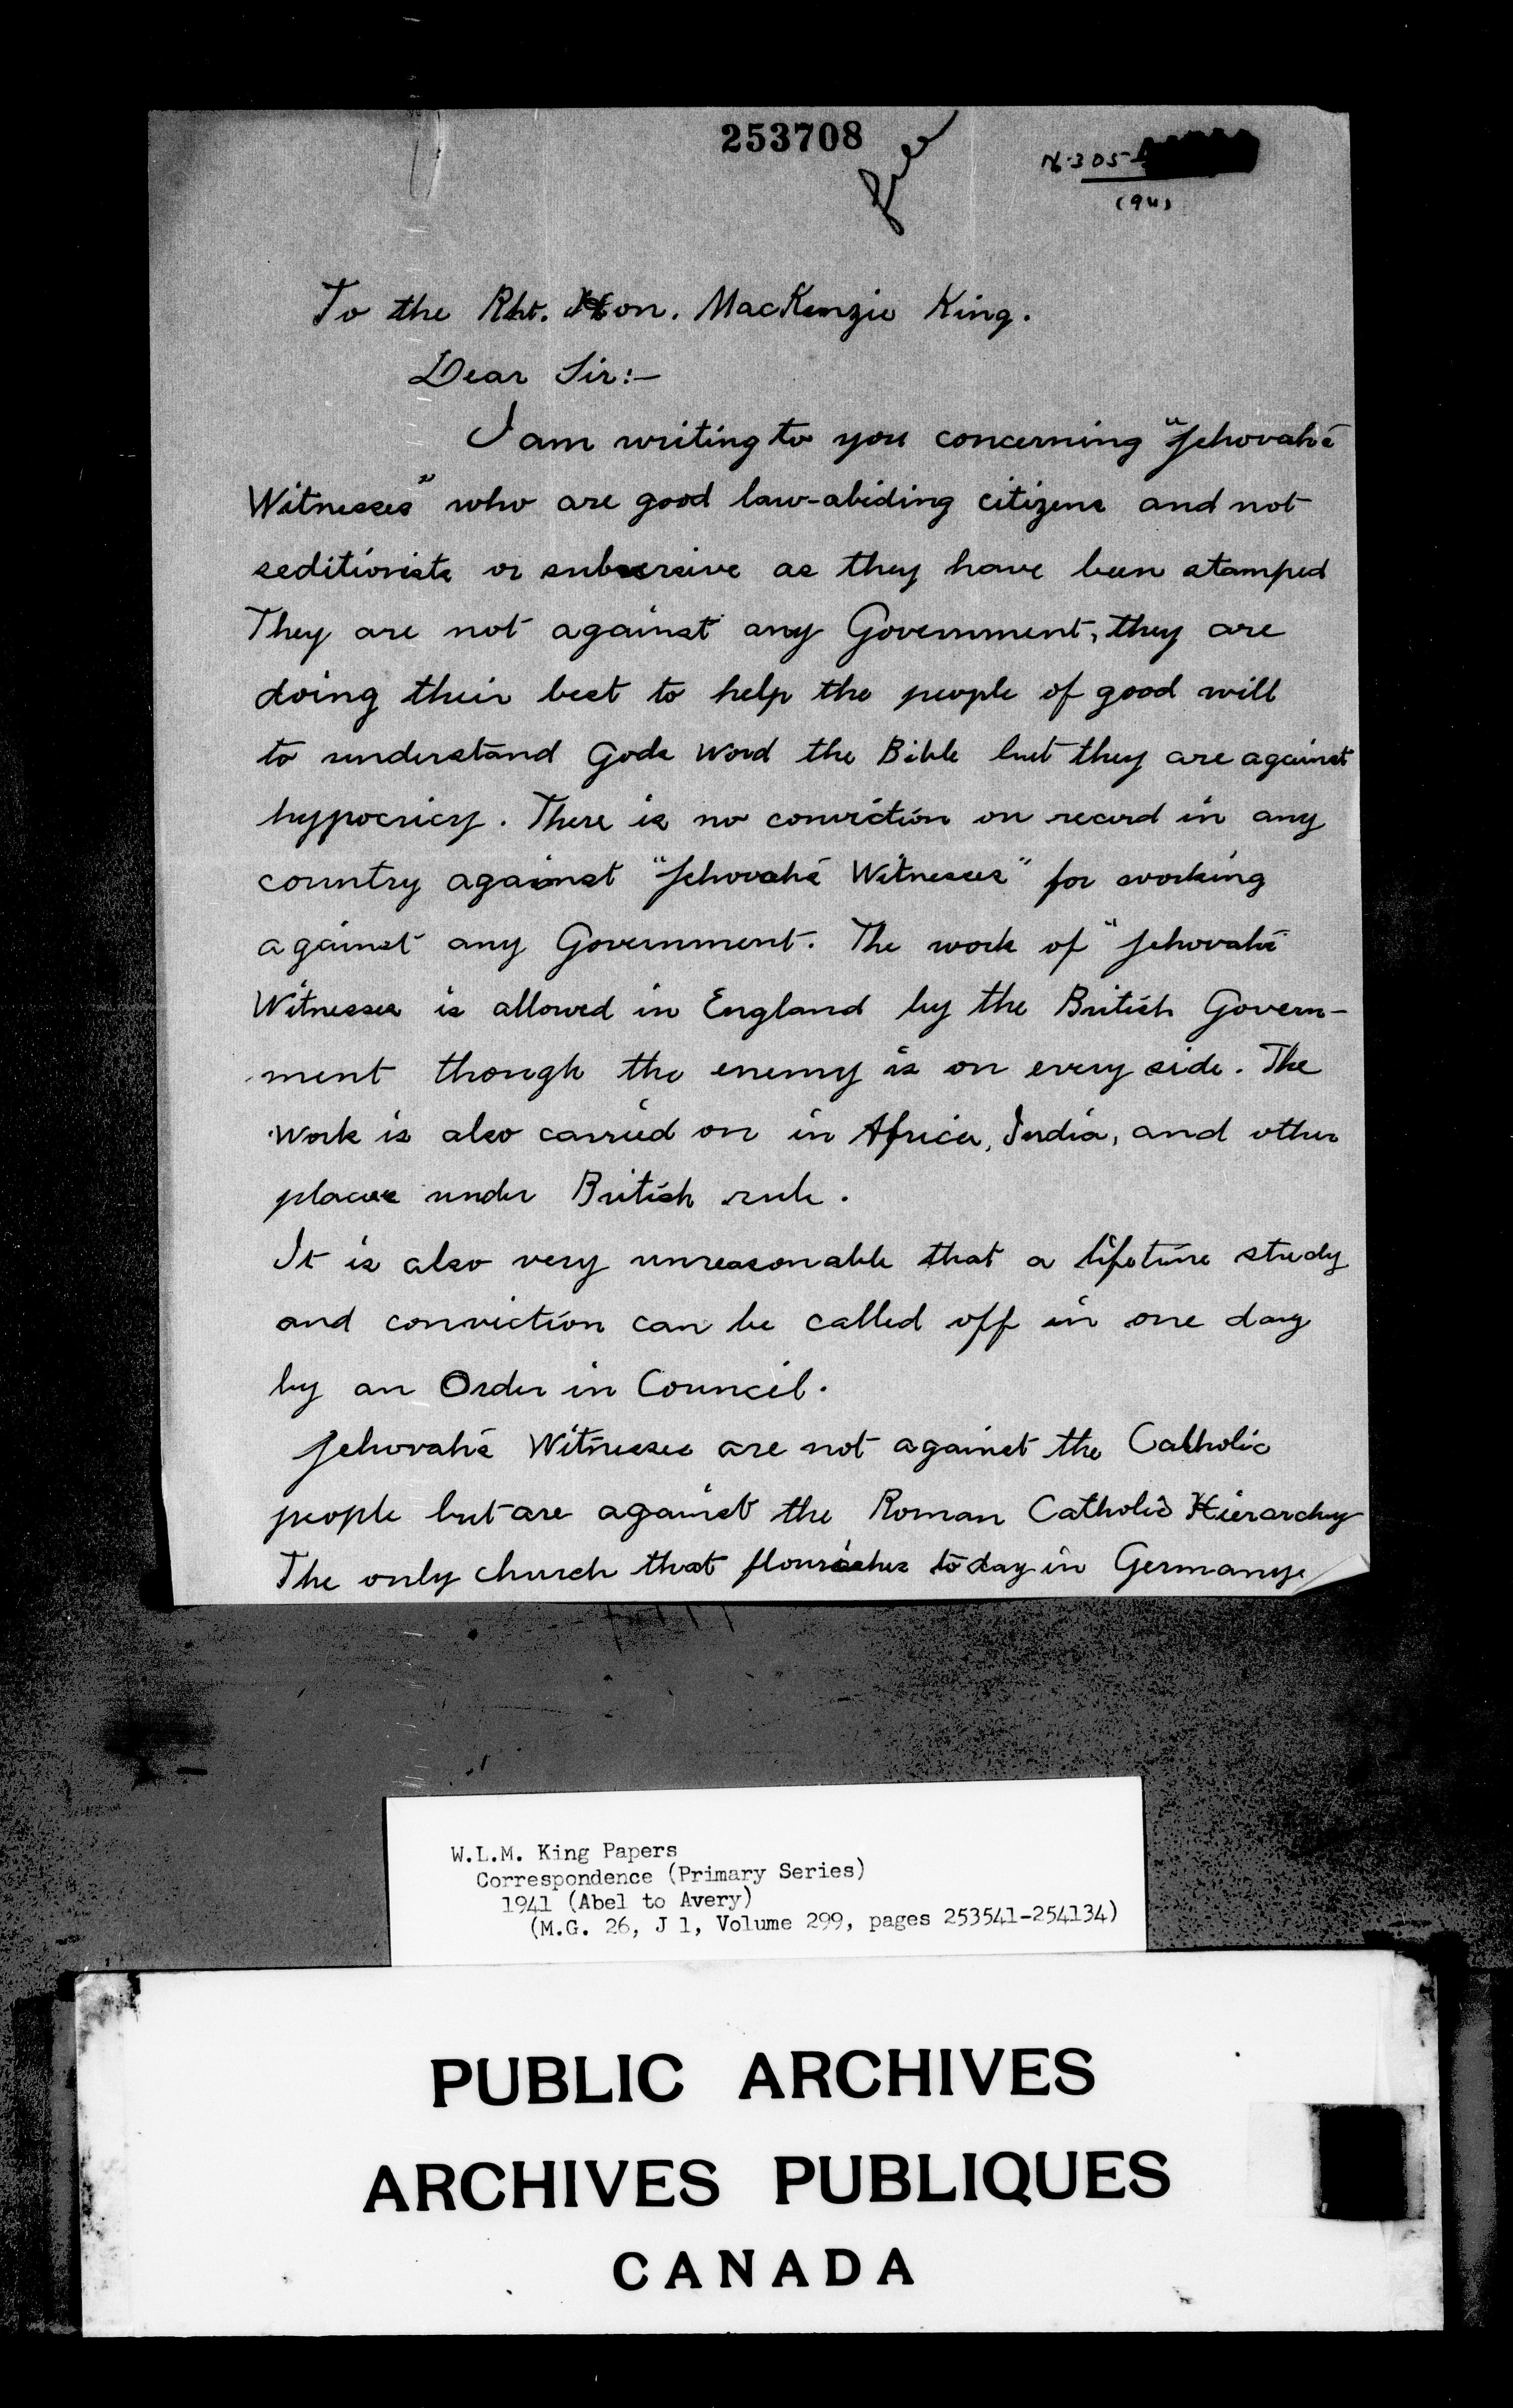 253708
file
N-305-A
(94)
To the Rht. Hon. MacKenzie King.
Dear Sir:-
I am writing to you concerning "Jehovah's
Witnesses" who are good law-abiding citizens and not
seditionists or subversive as they have been stamped
They are not against any Government, they are
doing their best to help the people of good will
to understand Gods Word the Bible but they are against
hypocricy. There is no conviction on record in any
country against "Jehovah's Witnesses" for working
against any Government. The work of "Jehovah's
Witnesses is allowed in England by the British Govern-
ment though the enemy is on every side. The
work is also carried on in Africa, India, and other
places under British rule.
It is also very unreasonable that a lifetime study
and conviction can be called off in one day
by an Order in Council.
Jehovah's Witnesses are not against the Catholic
people but are against the Roman Catholic Hierarchy
The only church that flourishes today in Germany
W.L.M. King Papers
Correspondence (Primary Series)
1941 (Abel to Avery)
(M.G. 26, J 1, Volume 299, pages 253541-254134)
PUBLIC ARCHIVES
ARCHIVES PUBLIQUES
CANADA